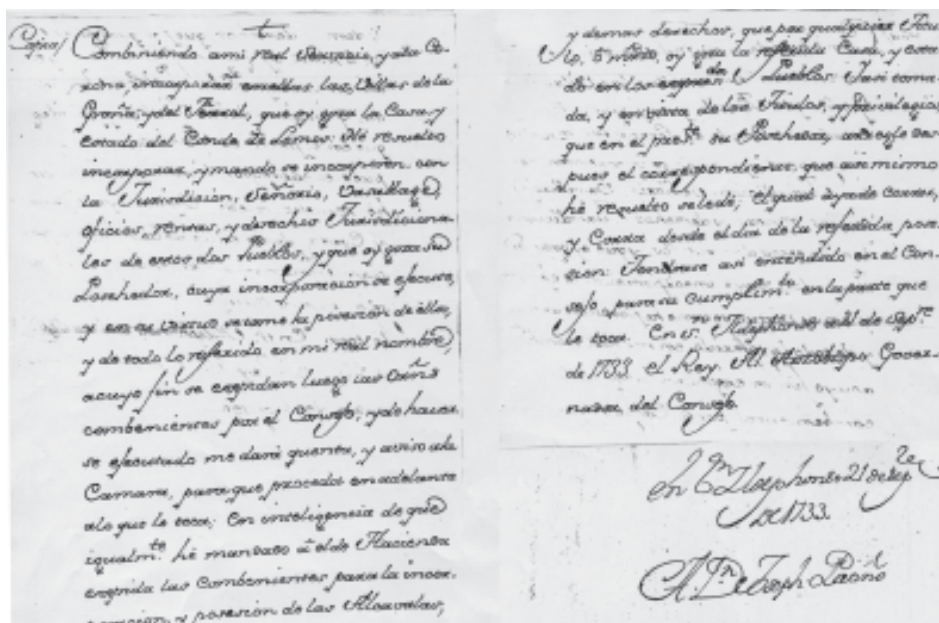 Copia/
Combiniendo a mi real Servicio, y ala Co-
rona incorporar en ellas las Villas de la
Graña, y del Ferrol, que oy goza la Casa y
estado del Conde de Lemos: Hé resuelto
incorporar, y mando se incorporen con
la Jurisdicion, Señorio, Vasallage,
oficios, rentas, y derechos Jurisdiciona-
les de estos dos Pueblos, y que oy goza su
Poseedor, cuya incorporacion se efectue,
y en su virtud se tome la posesion de ellas,
y de todo lo referido en mi real nombre,
acuyo fin se expidan luego las Ordns
combenientes por el Consejo, y de haver
se ejecutado me dará quenta, y aviso ala
Camara, para que proceda en adelante
alo que le toca; en inteligencia de que
igualmte. hé mandado á el de Hacienda
expida las Combenientes para la incor-
poracion, y posesion de las Alcavalas,
y demas derechos, que por qualquier Titu-
lo, ó motivo, oy goza la referida Casa, y esta-
do en los expresados Pueblos. I asi toma-
da, y en vista de los Titulos, y privilegios,
que en el presente su Poseedor, una
pues el correspondiente que asi mismo
hé resuelto sele dé; el qual ha de correr,
y Conste desde el dia de la referida pose-
sion. Tendrase asi entendido en el Con-
sejo, para su Cumplimto. en la parte que
le toca. En Sn. Ildephonso a 21 de Sepre.
de 1733. el Rey. Al Arzobispo Gover-
nador del Consejo.
En Sn Ildephonso 21 de Sepre
de 1733.
A. Dn Joseph Patiño